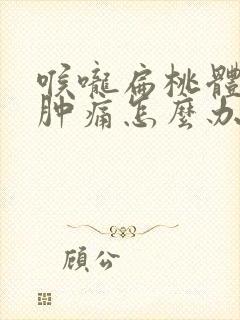 喉嚨扁桃體
肿痛怎麼办
顧公